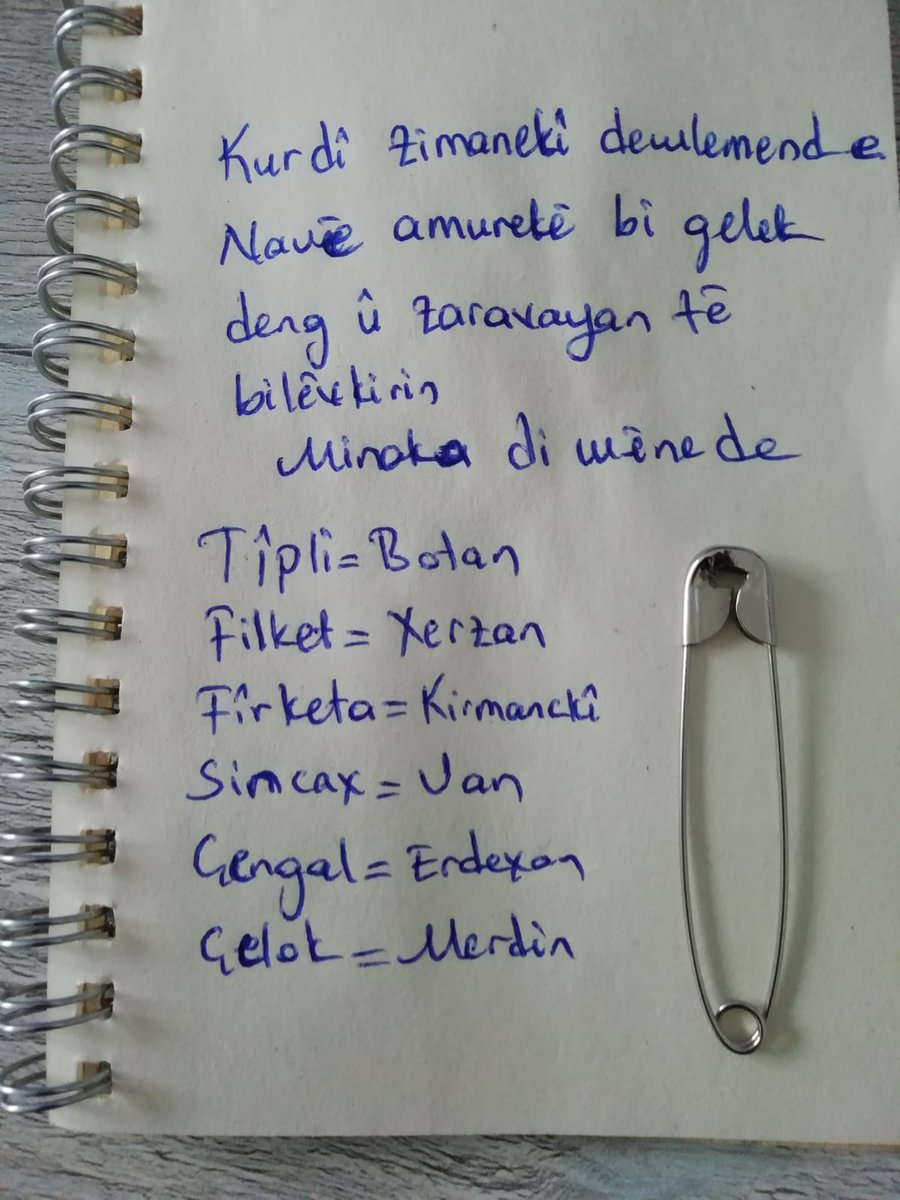 Kurdî zimanekî dewlemend e
Navê amurekê bi gelek
deng û zaravayan tê
bilêvkirin
Minaka di wênede
Tîpli= Botan
Filket = Xerzan
Fîrketa = Kirmanckî
Simcax = Van
Çengal = Erdexan
Çelok = Merdin